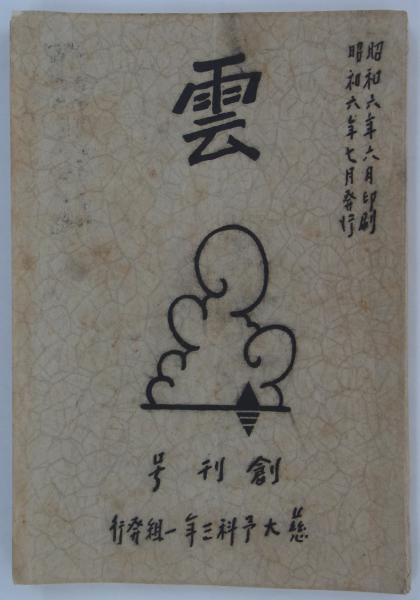 昭和六年六月印刷
昭和六年七月発行
雲
創刊号
慈大予科三年一組発行